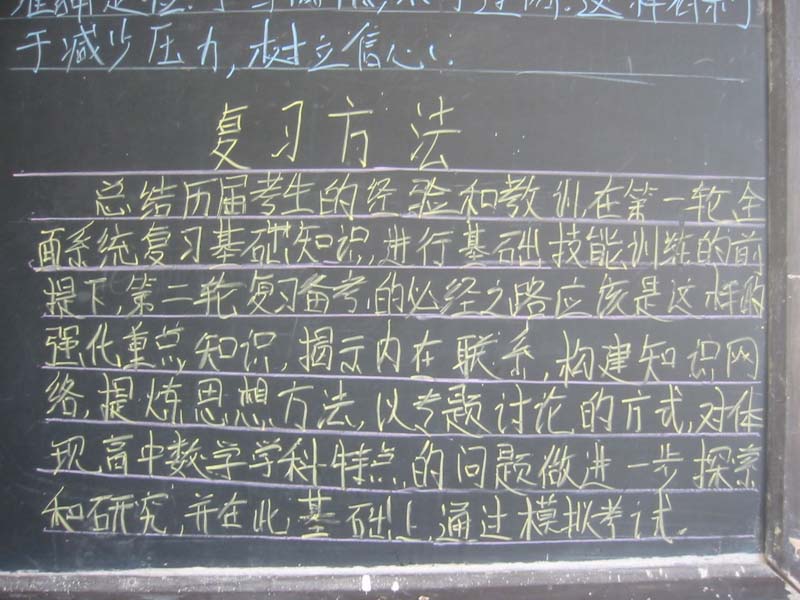 于减少压力,树立信心.
复习方法
总结历届考生的经验和教训,在第一轮全
面系统复习基础知识,进行基础技能训练的前
提下,第二轮复习备考的必经之路应该是这样的
强化重点知识,揭示内在联系,构建知识网
络,提炼思想方法,以专题讨论的方式,对体
现高中数学学科特点的问题做进一步探索
和研究,并在此基础上,通过模拟考试.